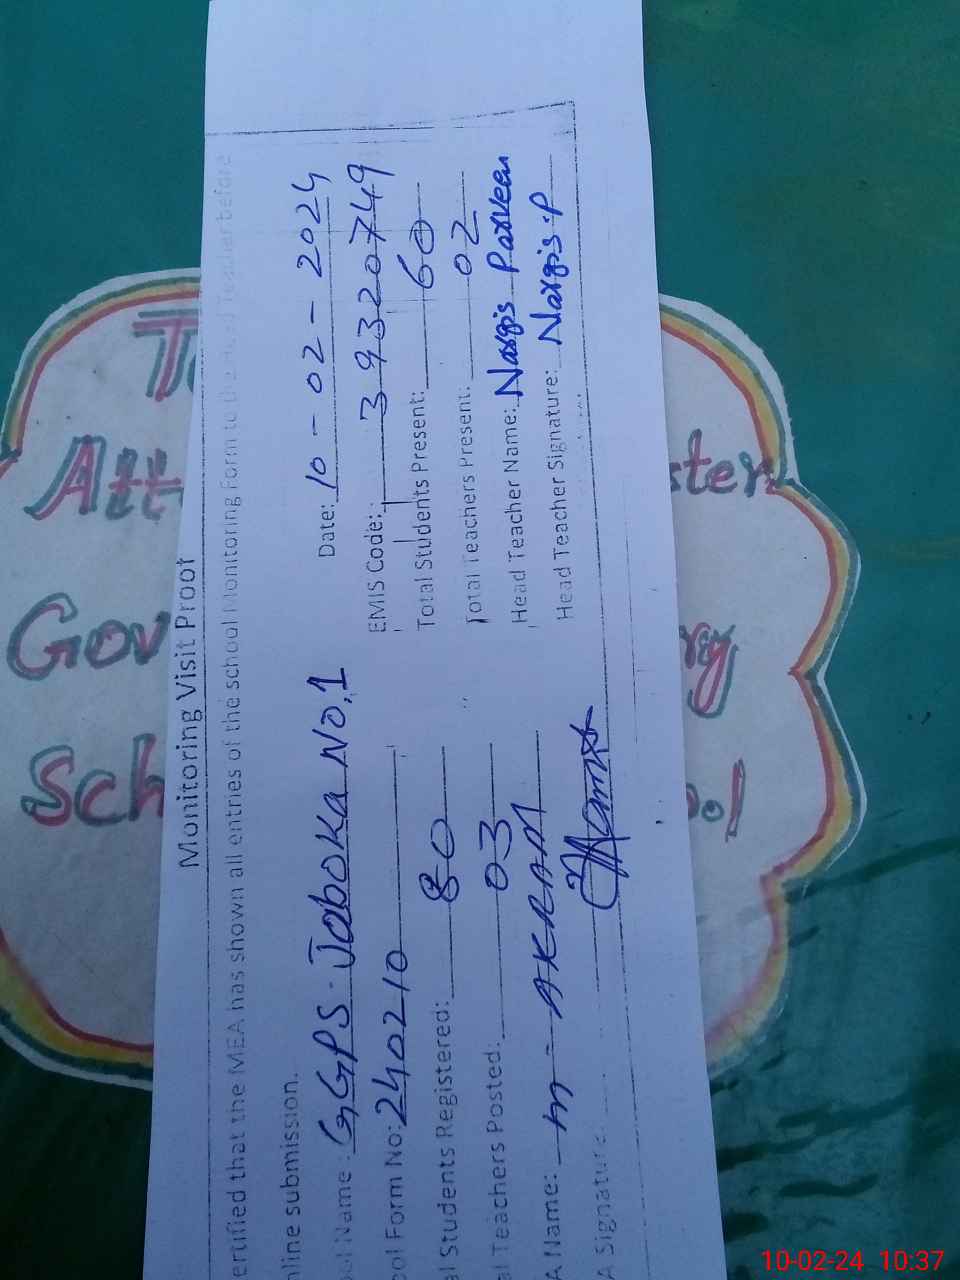 Monitoring Visit Proof
ertified that the MEA has shown all entries of the school Monitoring Form to the Head Teacher before
nline submission.
Date: 10-02-2024
ool Name: GGPS. Joboka No.1
EMIS Code: 39320749
ool Form No: 240210
Total Students Present: 60
al Students Registered: 80
Total Teachers Present: 02
al Teachers Posted: 03
Head Teacher Name: Nargis Parveen
A Name: M-AKRAM
Head Teacher Signature: Nargis.P
A Signature:
Att ster
Gov ry
Sch ool
10-02-24 10:37